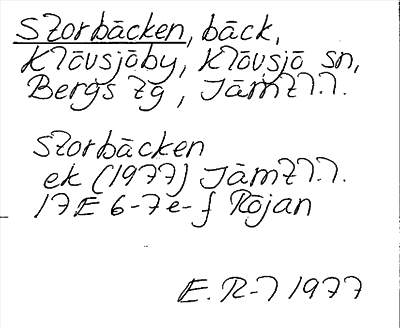 Storbäcken, bäck,
Klövsjöby, Klövsjö sn,
Bergs tg, Jämtl.
Storbäcken
ek (1977) Jämtl.
17E 6-7e-f Röjan
E. R-l 1977